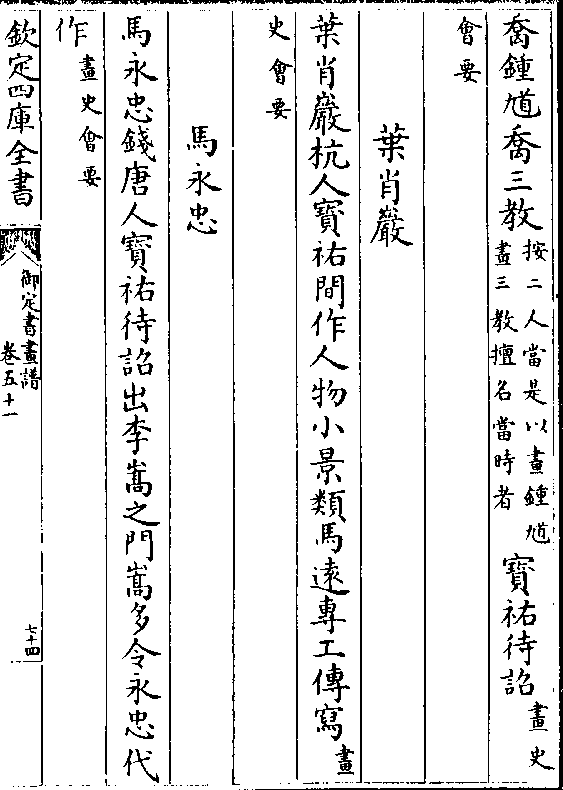 喬鍾馗喬三教按二人當是以畫鍾馗畫三教擅名當時者寶祐待詔畫史
會要
葉肖巖
葉肖巖杭人寶祐間作人物小景類馬遠專工傳寫畫
史會要
馬永忠
馬永忠錢唐人寶祐待詔出李嵩之門嵩多令永忠代
作畫史會要
欽定四庫全書
御定書畫譜
卷五十一
七十四